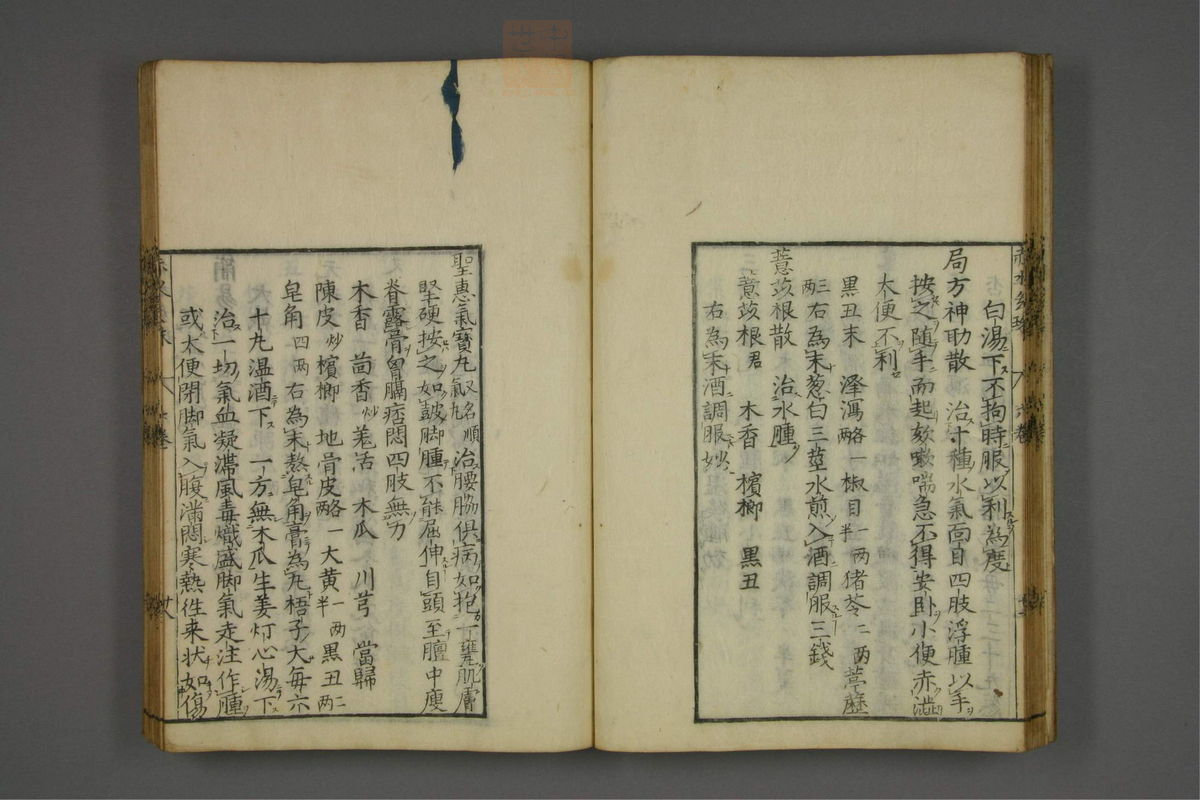 白湯下不拘時服以利為度
局方神助散 治十種水氣面目四肢浮腫以手
按之随手而起欬嗽喘急不得安卧小便赤澁
大便不利
黒丑末 澤瀉 椒目 一両半 猪苓 二両 葶藶
三両 右為末葱白三莖水煎入酒調服三錢
薏苡根散 治水腫
薏苡根君 木香 檳榔 黒丑
右為末酒調服妙
聖惠氣寶丸 又名順氣丸 治腰脇俱病如抱一甕肌膚
堅硬按之如皷脚腫不能屈伸自頭至膻中瘦
脊露骨胷膈痞悶四肢無力
木香 茴香炒 羌活 木瓜 川芎 當歸
陳皮炒 檳榔 地骨皮 大黄 一両半 黒丑 二両
皂角 四両 右為末熬皂角膏為丸梧子大每六
十丸温酒下 一方無木瓜生姜灯心湯下
治一切氣血凝滯風毒熾盛脚氣走注作腫
或大便閉脚氣入腹滿悶寒熱徃来状如傷